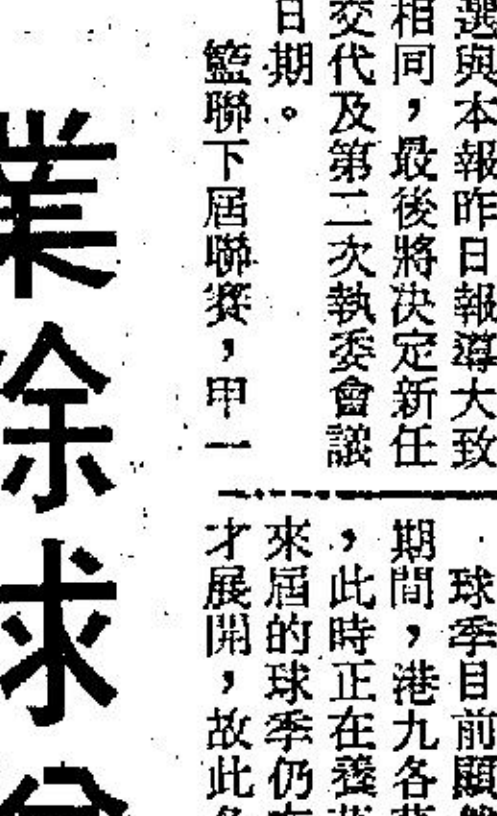 選與本報昨日報導大致
相同，最後將決定新任
交代及第二次執委會議
日期。
籃聯下屆聯賽，甲一
球季目前顯
期間，港九各
，此時正在養
來屆的球季仍
才展開，故此
業餘求